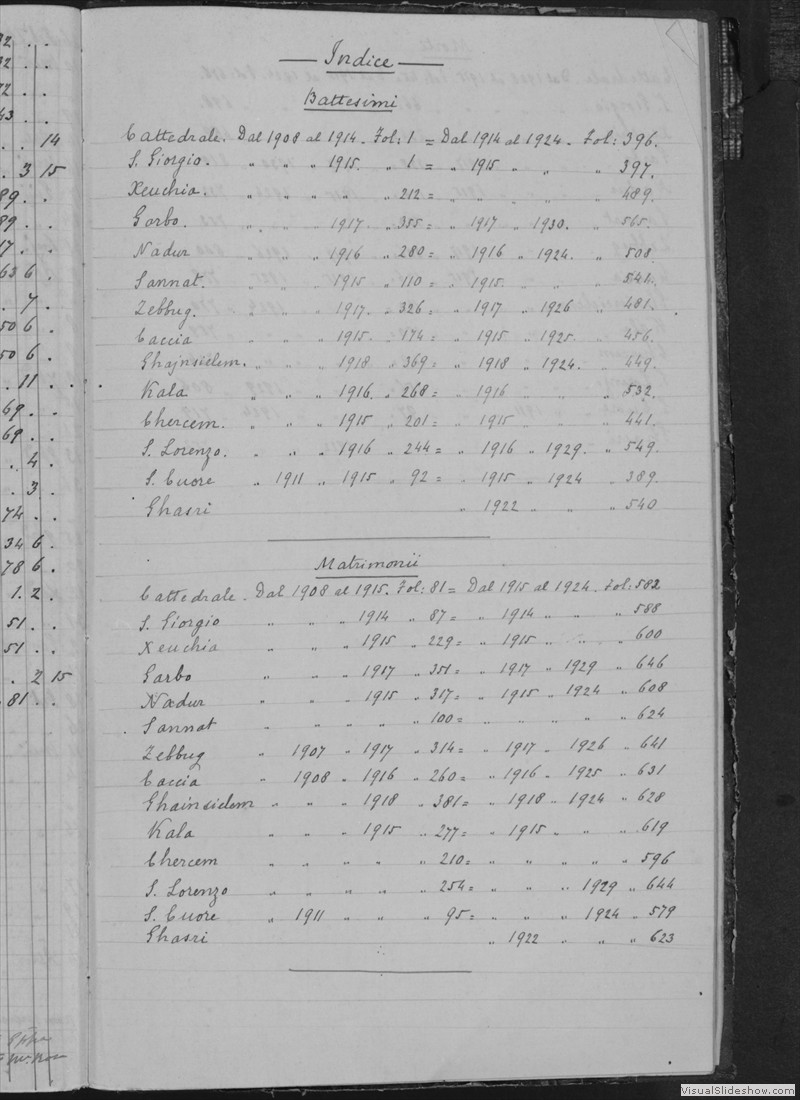 Indice
Battesimi
Cattedrale. Dal 1908 al 1914. Fol: 1 = Dal 1914 al 1924. Fol: 396.
S. Giorgio. " " " 1915. " 1 = " 1915 " " " 397.
Xeuchia. " " " " " 212 = " " " " " 489.
Garbo. " " " 1917 " 355 = " 1917 " 1930. " 565.
Nadur " " " 1916 " 280 = " 1916 " 1924. " 508.
Sannat. " " " 1915 " 110 = " 1915. " " " 541.
Zebbug. " " " 1917. " 326 = " 1917 " 1926 " 481.
Caccia " " " 1915. " 174 = " 1915 " 1925. " 456.
Ghajnsielem. " " " 1918 " 369 = " 1918 " 1924. " 449.
Kala " " " 1916. " 268 = " 1916 " " " 532.
Chercem. " " " 1915 " 201 = " 1915 " " " 441.
S. Lorenzo. " " " 1916 " 244 = " 1916 " 1929. " 549.
S. Cuore " 1911 " 1915 " 92 = " 1915 " 1924 " 389.
Ghasri " 1922 " " " 540
Matrimonii
Cattedrale. Dal 1908 al 1915. Fol: 81 = Dal 1915 al 1924. Fol: 582
S. Giorgio " " " 1914 " 87 = " 1914 " " " 588
Xeuchia " " " 1915 " 229 = " 1915 " " " 600
Garbo " " " 1917 " 351 = " 1917 " 1929 " 646
Nadur " " " 1915 " 317 = " 1915 " 1924 " 608
Sannat " " " " " 100 = " " " " " 624
Zebbug " 1907 " 1917 " 314 = " 1917 " 1926 " 641
Caccia " 1908 " 1916 " 260 = " 1916 " 1925 " 631
Ghainsielem " " " 1918 " 381 = " 1918 " 1924 " 628
Kala " " " 1915 " 277 = " 1915 " " " 619
Chercem " " " " " 210 = " " " " " 596
S. Lorenzo " " " " " 254 = " " " 1929 " 644
S. Cuore " 1911 " " " 95 = " " " 1924 " 579
Ghasri " 1922 " " " 623
VisualSlideshow.com